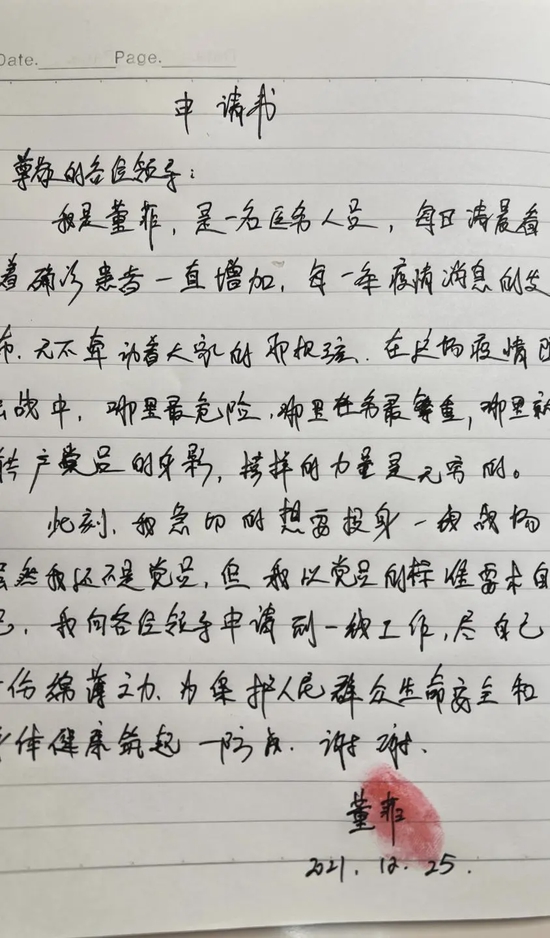 Date. Page.
申请书
尊敬的各位领导：
我是董菲，是一名医务人员，每日清晨看
着确诊患者一直增加，每一条疫情消息的发
布，无不牵动着大家的那根弦．在这场疫情
战中，哪里最危险，哪里任务最繁重，哪里就
共产党员的身影，榜样的力量是无穷的。
此刻，我急切的想要投身一线战场
虽然我还不是党员，但我以党员的标准要求自
己，我向各位领导申请到一线工作，尽自己
份绵薄之力．为保护人民群众生命安全和
身体健康筑起一防点．谢谢．
董菲
2021．12．25．